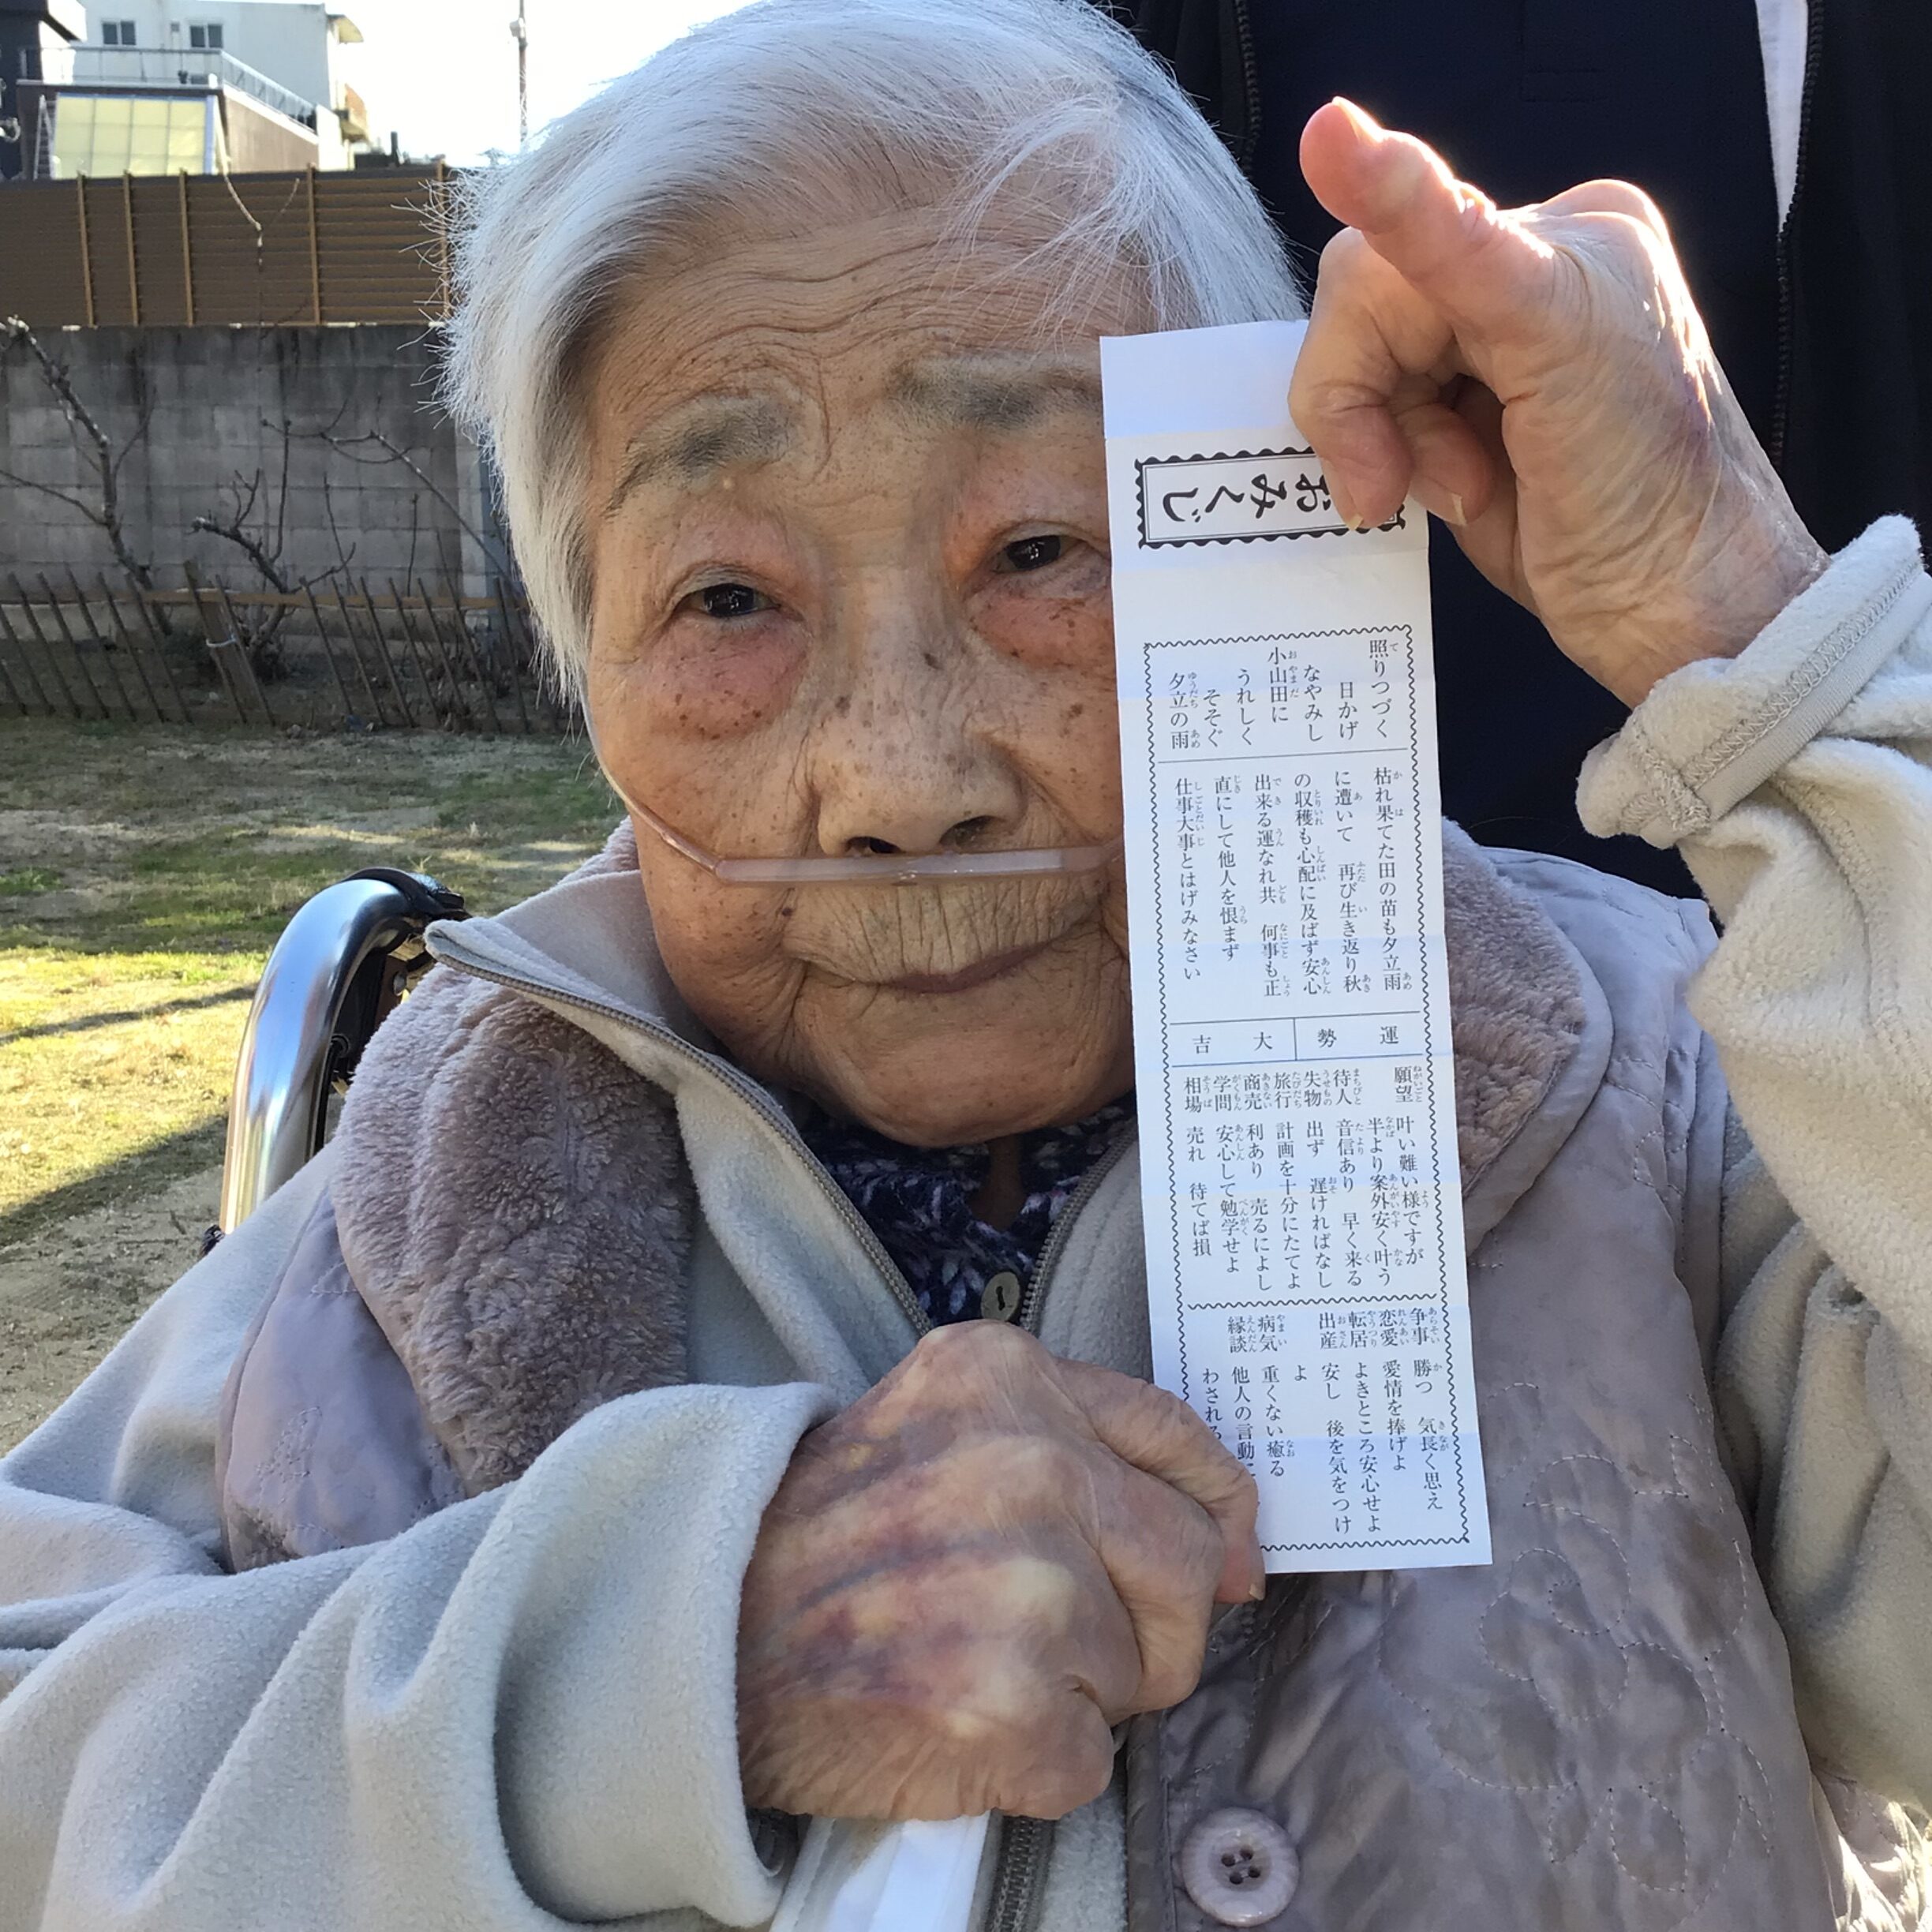 おみくじ
照りつづく
日かげ
なやみし
小山田に
うれしく
そそぐ
夕立の雨
枯れ果てた田の苗も夕立雨
に遭いて 再び生き返り秋
の収穫も心配に及ばず安心
出来る運なれ共 何事も正
直にして他人を恨まず
仕事大事とはげみなさい
運勢 大吉
願望 叶い難い様ですが
半より案外安く叶う
待人 音信あり 早く来る
失物 出ず 遅ければなし
旅行 計画を十分にたてよ
商売 利あり 売るによし
学問 安心して勉学せよ
相場 売れ 待てば損
争事 勝つ 気長く思え
恋愛 愛情を捧げよ
転居 よきところ安心せよ
出産 安し 後を気をつけ
よ
病気 重くない癒る
縁談 他人の言動に
わされる